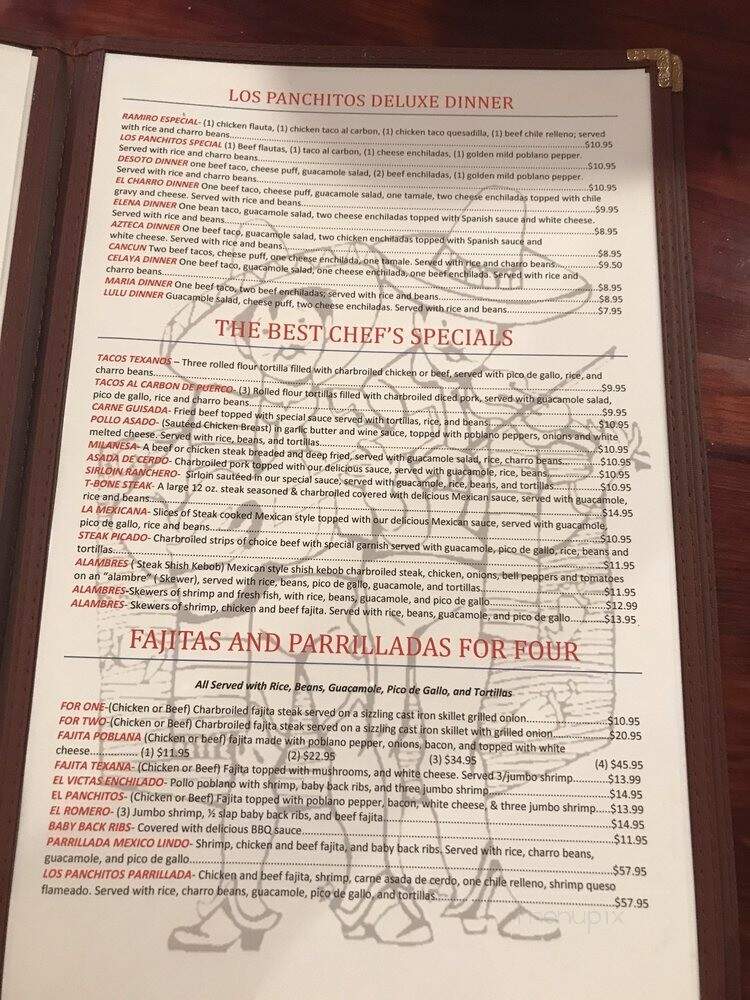 LOS PANCHITOS DELUXE DINNER
RAMIRO ESPECIAL- (1) chicken flauta, (1) chicken taco al carbon, (1) chicken taco quesadilla, (1) beef chile relleno; served
with rice and charro beans....$10.95
LOS PANCHITOS SPECIAL (1) Beef flautas, (1) taco al carbon, (1) cheese enchiladas, (1) golden mild poblano pepper.
Served with rice and charro beans....$10.95
DESOTO DINNER one beef taco, cheese puff, guacamole salad, (2) beef enchiladas, (1) golden mild poblano pepper.
Served with rice and charro beans....$10.95
EL CHARRO DINNER One beef taco, cheese puff, guacamole salad, one tamale, two cheese enchiladas topped with chile
gravy and cheese. Served with rice and beans....$9.95
ELENA DINNER One bean taco, guacamole salad, two cheese enchiladas topped with Spanish sauce and white cheese.
Served with rice and beans....$8.95
AZTECA DINNER One beef taco, guacamole salad, two chicken enchiladas topped with Spanish sauce and
white cheese. Served with rice and beans....$8.95
CANCUN Two beef tacos, cheese puff, one cheese enchilada, one tamale. Served with rice and charro beans....$9.50
CELAYA DINNER One beef taco, guacamole salad, one cheese enchilada, one beef enchilada. Served with rice and
charro beans....$8.95
MARIA DINNER One beef taco, two beef enchiladas; served with rice and beans....$8.95
LULU DINNER Guacamole salad, cheese puff, two cheese enchiladas. Served with rice and beans....$7.95
THE BEST CHEF'S SPECIALS
TACOS TEXANOS – Three rolled flour tortilla filled with charbroiled chicken or beef, served with pico de gallo, rice, and
charro beans....$9.95
TACOS AL CARBON DE PUERCO- (3) Rolled flour tortillas filled with charbroiled diced pork, served with guacamole salad,
pico de gallo, rice and charro beans....$9.95
CARNE GUISADA- Fried beef topped with special sauce served with tortillas, rice, and beans....$10.95
POLLO ASADO- (Sautéed Chicken Breast) in garlic butter and wine sauce, topped with poblano peppers, onions and white
melted cheese. Served with rice, beans, and tortillas....$10.95
MILANESA- A beef or chicken steak breaded and deep fried, served with guacamole salad, rice, charro beans....$10.95
ASADA DE CERDO- Charbroiled pork topped with our delicious sauce, served with guacamole, rice, beans....$10.95
SIRLOIN RANCHERO- Sirloin sautéed in our special sauce, served with guacamole, rice, beans, and tortillas....$10.95
T-BONE STEAK- A large 12 oz. steak seasoned & charbroiled covered with delicious Mexican sauce, served with guacamole,
rice and beans....$14.95
LA MEXICANA- Slices of Steak cooked Mexican style topped with our delicious Mexican sauce, served with guacamole,
pico de gallo, rice and beans....$10.95
STEAK PICADO- Charbroiled strips of choice beef with special garnish served with guacamole, pico de gallo, rice, beans and
tortillas....$11.95
ALAMBRES ( Steak Shish Kebob) Mexican style shish kebob charbroiled steak, chicken, onions, bell peppers and tomatoes
on an "alambre" ( Skewer), served with rice, beans, pico de gallo, guacamole, and tortillas....$11.95
ALAMBRES-Skewers of shrimp and fresh fish, with rice, beans, guacamole, and pico de gallo....$12.99
ALAMBRES- Skewers of shrimp, chicken and beef fajita. Served with rice, beans, guacamole, and pico de gallo....$13.95
FAJITAS AND PARRILLADAS FOR FOUR
All Served with Rice, Beans, Guacamole, Pico de Gallo, and Tortillas
FOR ONE-(Chicken or Beef) Charbroiled fajita steak served on a sizzling cast iron skillet grilled onion....$10.95
FOR TWO-(Chicken or Beef) Charbroiled fajita steak served on a sizzling cast iron skillet with grilled onion....$20.95
FAJITA POBLANA (Chicken or beef) fajita made with poblano pepper, onions, bacon, and topped with white
cheese.... (1) $11.95 (2) $22.95 (3) $34.95 (4) $45.95
FAJITA TEXANA- (Chicken or Beef) Fajita topped with mushrooms, and white cheese. Served 3/jumbo shrimp....$13.99
EL VICTAS ENCHILADO- Pollo poblano with shrimp, baby back ribs, and three jumbo shrimp....$14.95
EL PANCHITOS- (Chicken or Beef) Fajita topped with poblano pepper, bacon, white cheese, & three jumbo shrimp....$13.99
EL ROMERO- (3) Jumbo shrimp, ½ slap baby back ribs, and beef fajita....$14.95
BABY BACK RIBS- Covered with delicious BBQ sauce....$11.95
PARRILLADA MEXICO LINDO- Shrimp, chicken and beef fajita, and baby back ribs. Served with rice, charro beans,
guacamole, and pico de gallo....$57.95
LOS PANCHITOS PARRILLADA- Chicken and beef fajita, shrimp, carne asada de cerdo, one chile relleno, shrimp queso
flameado. Served with rice, charro beans, guacamole, pico de gallo, and tortillas....$57.95
menupix